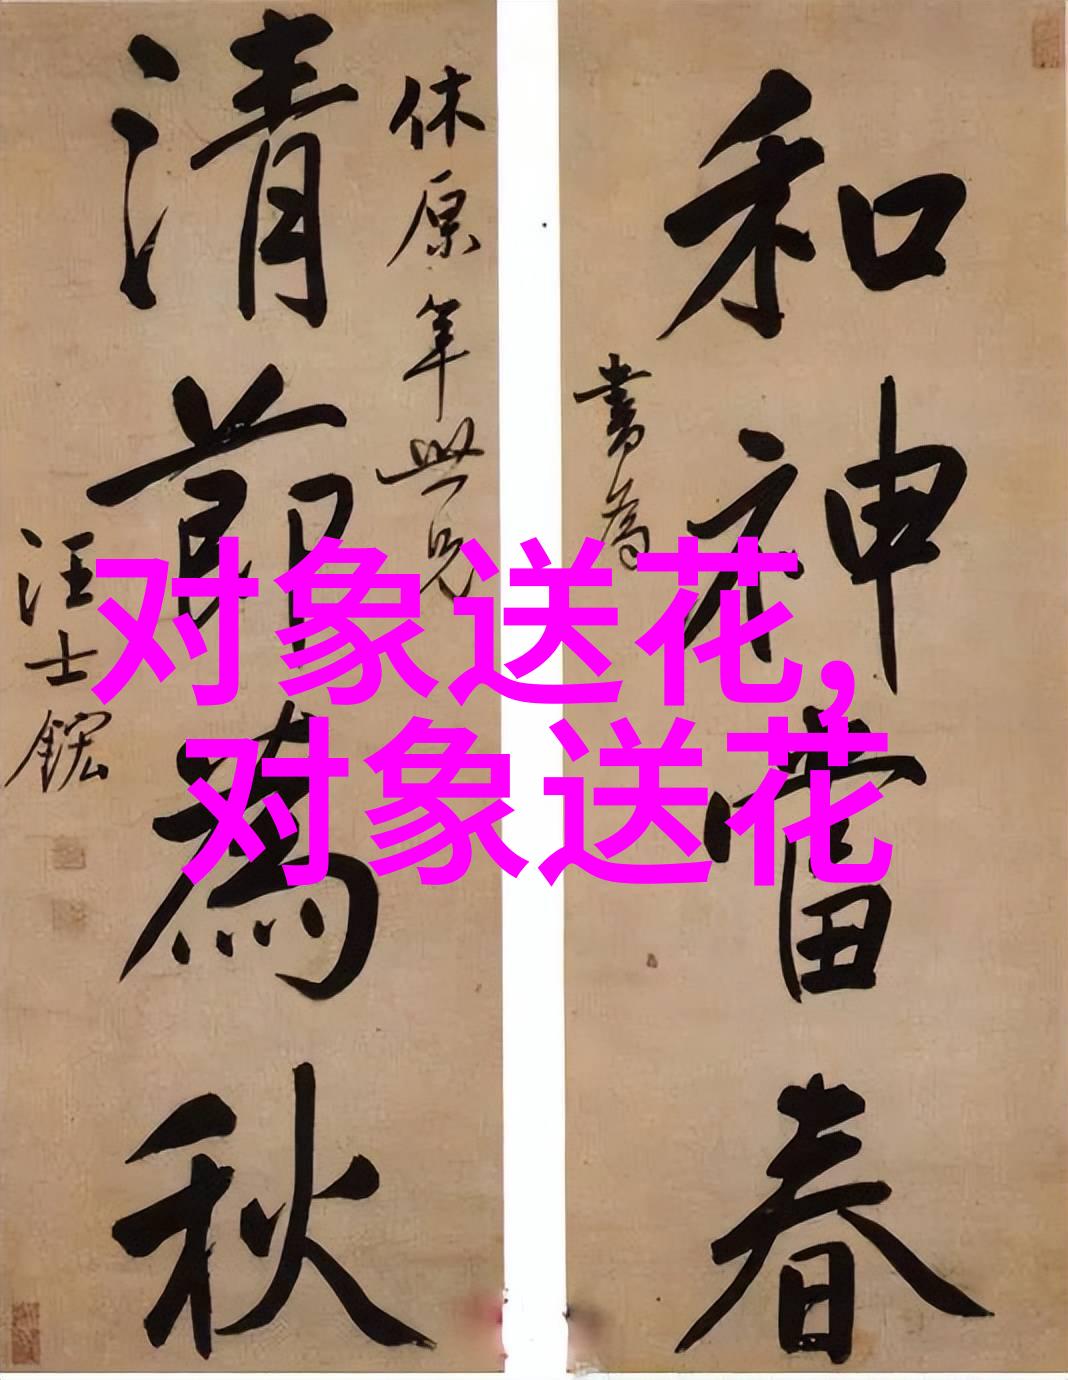 和神當春
書為
休原年世兄
清節為秋
汪士鋐
对象送花,
对象送花